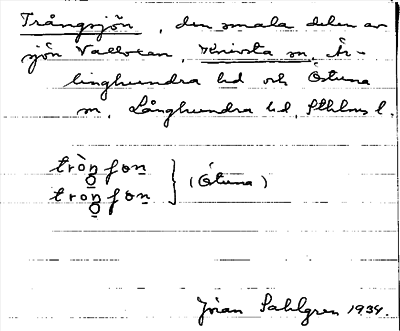 Trångsjön, den smala delen av
sjön Valloxen, Knivsta sn, Är-
linghundra hd och Östuna
sn, Långhundra hd, Sthlms l.
(Östuna)
Jöran Sahlgren 1934.